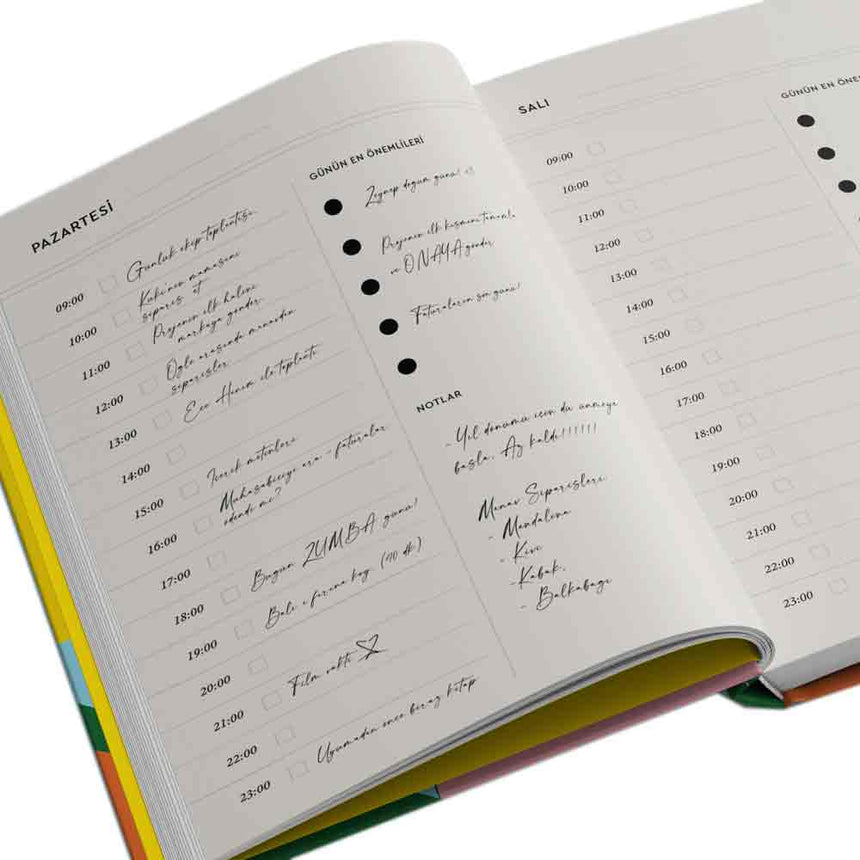 PAZARTESİ
09:00 Günlük ekip toplantısı
10:00 Kuki'nin mamasını
sipariş et
11:00 Projenin ilk halini
markaya gönder
12:00 Öğle arasında manavdan
siparişler
13:00 Ece Hanım ile toplantı
14:00
15:00 İçerik metinleri
16:00 Muhasebeciye ara - faturalar
ödendi mi?
17:00
18:00 Bugün ZUMBA günü!
19:00 Balı ı fırına koy (40 dk.)
20:00
21:00 Film vakti
22:00
23:00 Uyumadan önce biraz kitap
GÜNÜN EN ÖNEMLİLERİ
Zeynep doğum günü!
Projenin ilk kısmını tamamla
ve ONAYA gönder
Faturaların son günü!
NOTLAR
- Yıl dönümü için düşünmeye
başla. Ay kaldı!!!!!!
Manav Siparişleri
- Mandalina
- Kivi
- Kabak,
- Balkabağı
SALI
09:00
10:00
11:00
12:00
13:00
14:00
15:00
16:00
17:00
18:00
19:00
20:00
21:00
22:00
23:00
GÜNÜN EN